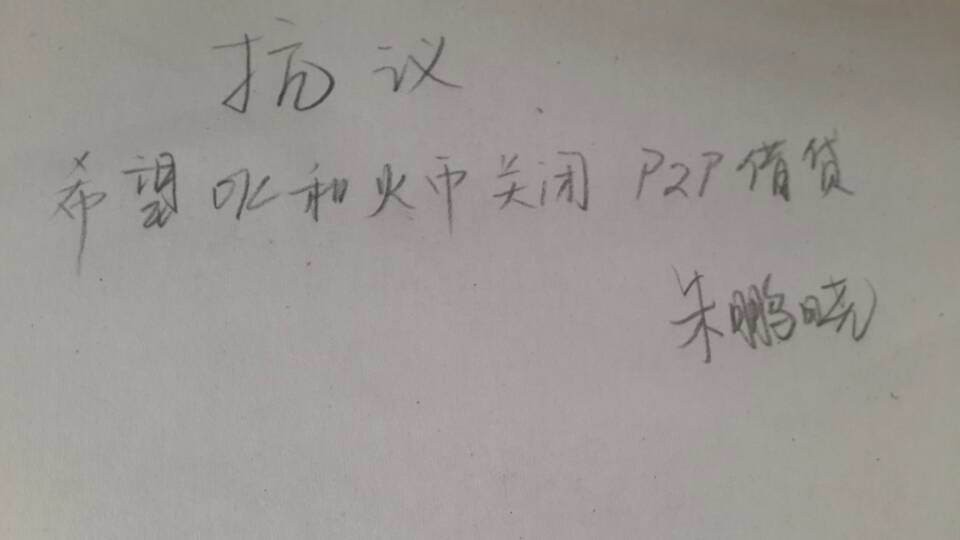 抗议
希望OK和火币关闭P2P借贷
朱鹏晓